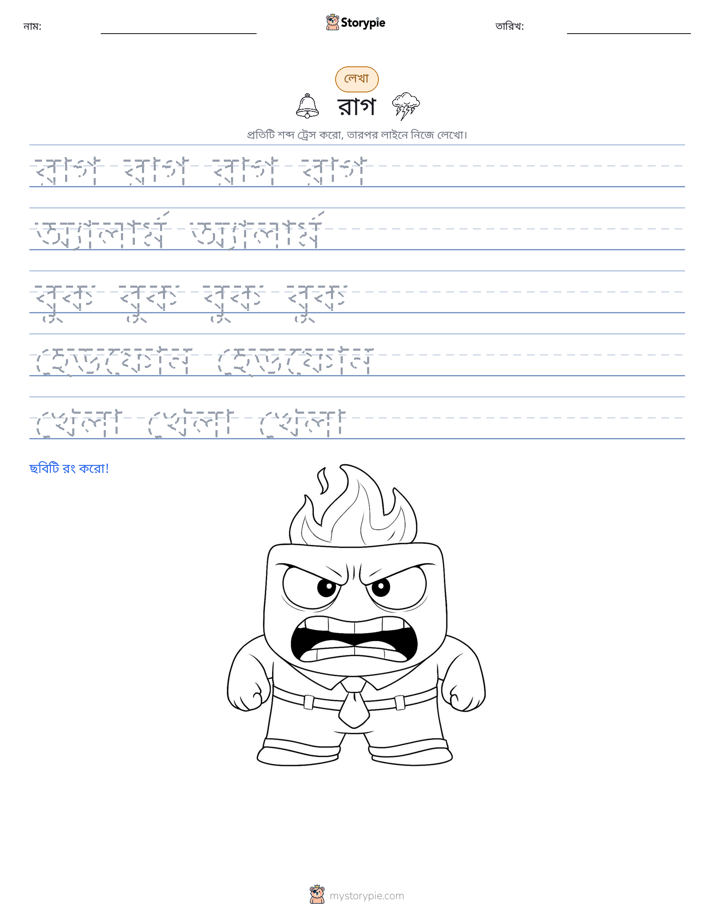 নাম:
Storypie
তারিখ:
লেখা
রাগ
প্রতিটি শব্দ ট্রেস করো, তারপর লাইনে নিজে লেখো।
রাগ রাগ রাগ রাগ
অ্যালার্ম অ্যালার্ম
বুক বুক বুক বুক
হেডফোন হেডফোন
খেলা খেলা খেলা
ছবিটি রং করো!
mystorypie.com